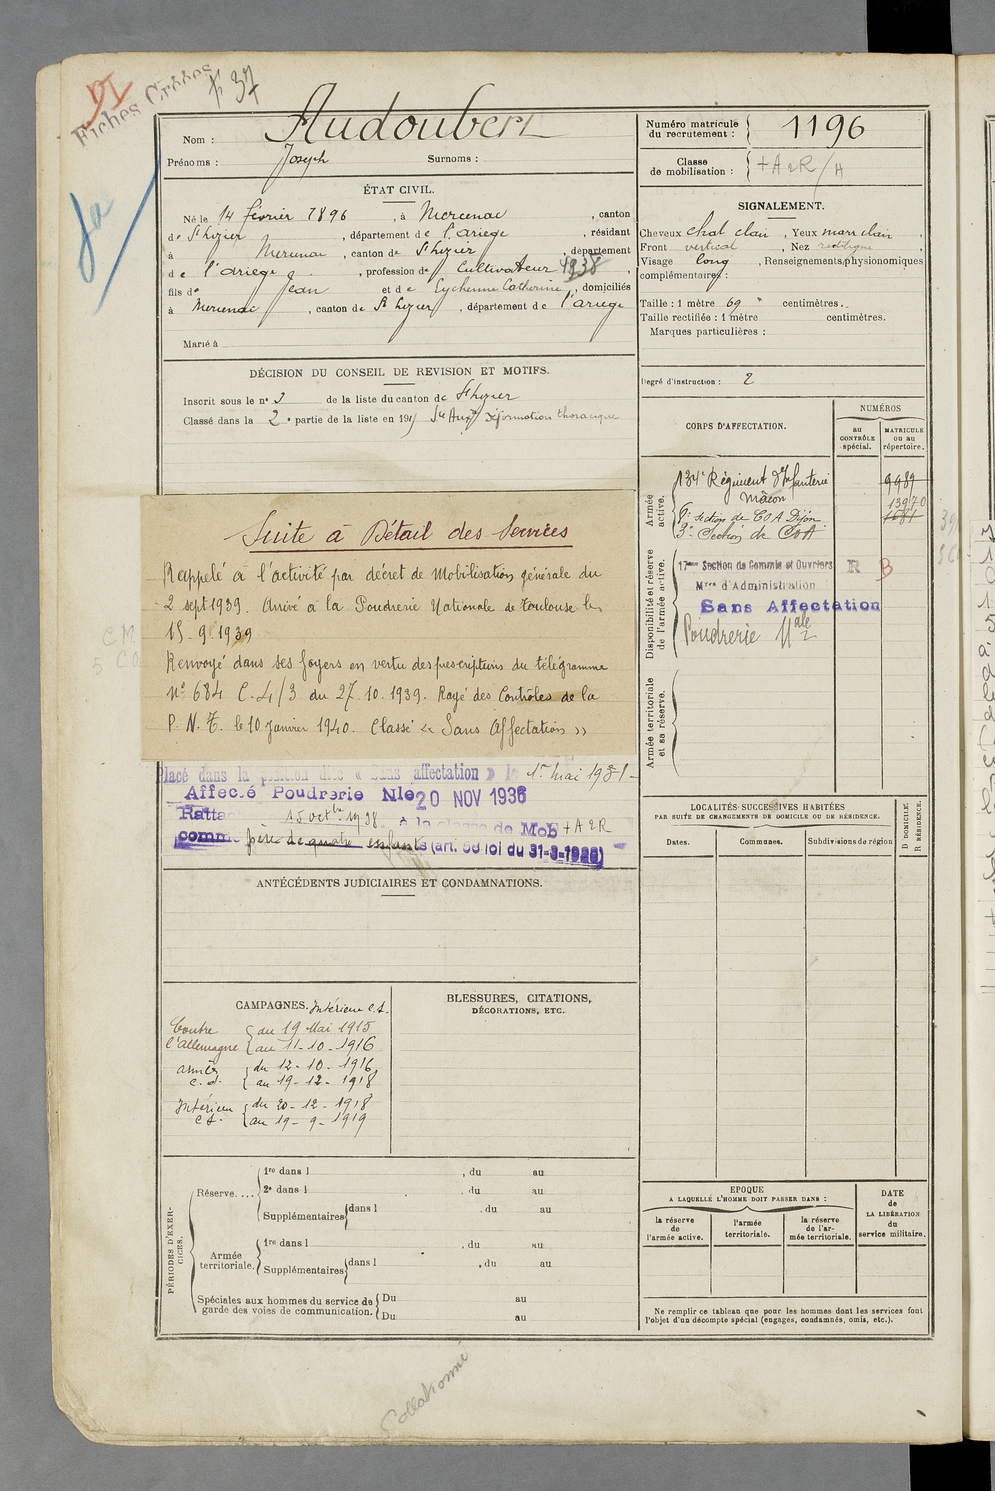 Fiches Créées
37
Nom : Audoubert
Prénoms : Joseph Surnoms :
ÉTAT CIVIL.
Né le 14 février 1896, à Mercenac, canton
de St Lizier, département de l'Ariège, résidant
à Mercenac, canton de St Lizier, département
de l'Ariège, profession de Cultivateur 1938,
fils de Jean et de Eychenne Catherine, domiciliés
à Mercenac, canton de St Lizier, département de l'ariège
Marié à
DÉCISION DU CONSEIL DE REVISION ET MOTIFS.
Inscrit sous le n° 3 de la liste du canton de St Lizier
Classé dans la 2e partie de la liste en 191 Sce Auxre Déformation thoracique
Suite à Détail des Services
Rappelé à l'activité par décret de Mobilisation générale du
2 sept 1939. Arrivé à la Poudrerie Nationale de Toulouse le
15-9-1939
Renvoyé dans ses foyers en vertu des prescriptions du télégramme
N° 684 C.4/3 du 27.10.1939. Rayé des Contrôles de la
P.N.T. le 10 Janvier 1940. Classé « Sans Affectation »
Placé dans la position dite « Sans affectation » le 1er mai 1931
Affecté Poudrerie Nle 20 NOV 1936
Rattac 15 octbre 1938 à la classe de Mob +A2R
comme père de quatre enfants (art. 58 loi du 31-3-1928)
ANTÉCÉDENTS JUDICIAIRES ET CONDAMNATIONS.
CAMPAGNES. Intérieur C.S.
Contre l'Allemagne { du 19 Mai 1915
au 11-10-1916
armées c.d. { du 12-10-1916
au 19-12-1918
Intérieur C.S. { du 20-12-1918
au 19-9-1919
BLESSURES, CITATIONS,
DÉCORATIONS, ETC.
PÉRIODES D'EXERCICES.
Réserve....
1re dans l , du au
2e dans l , du au
Supplémentaires dans l , du au
Armée territoriale.
1re dans l , du au
Supplémentaires dans l , du au
Spéciales aux hommes du service de
garde des voies de communication.
Du au
Du au
Numéro matricule
du recrutement : 1196
Classe
de mobilisation : +A2R/A
SIGNALEMENT.
Cheveux chat clair, Yeux marr clair,
Front vertical, Nez rectiligne,
Visage long, Renseignements physionomiques
complémentaires :
Taille : 1 mètre 69 centimètres.
Taille rectifiée : 1 mètre centimètres.
Marques particulières :
Degré d'instruction : 2
CORPS D'AFFECTATION.
NUMÉROS
au
CONTRÔLE
spécial.
MATRICULE
ou au
répertoire.
Armée
active.
134e Régiment d'Infanterie 9989
Mâcon 13970
8e Section de COA Dijon 1681
3e Section de COA
Disponibilité et réserve
de l'armée active.
17me Section de Commis et Ouvriers R B
Mres d'Administration
Sans Affectation
Poudrerie Nale
Armée territoriale
et sa réserve.
LOCALITÉS SUCCESSIVES HABITÉES
PAR SUITE DE CHANGEMENTS DE DOMICILE OU DE RÉSIDENCE.
Dates. Communes. Subdivisions de région
D DOMICILE.
R RÉSIDENCE.
EPOQUE
A LAQUELLE L'HOMME DOIT PASSER DANS :
la réserve
de
l'armée active.
l'armée
territoriale.
la réserve
de l'ar-
mée territoriale.
DATE
de
LA LIBÉRATION
du
service militaire.
Ne remplir ce tableau que pour les hommes dont les services font
l'objet d'un décompte spécial (engagés, condamnés, omis, etc.).
Collationné